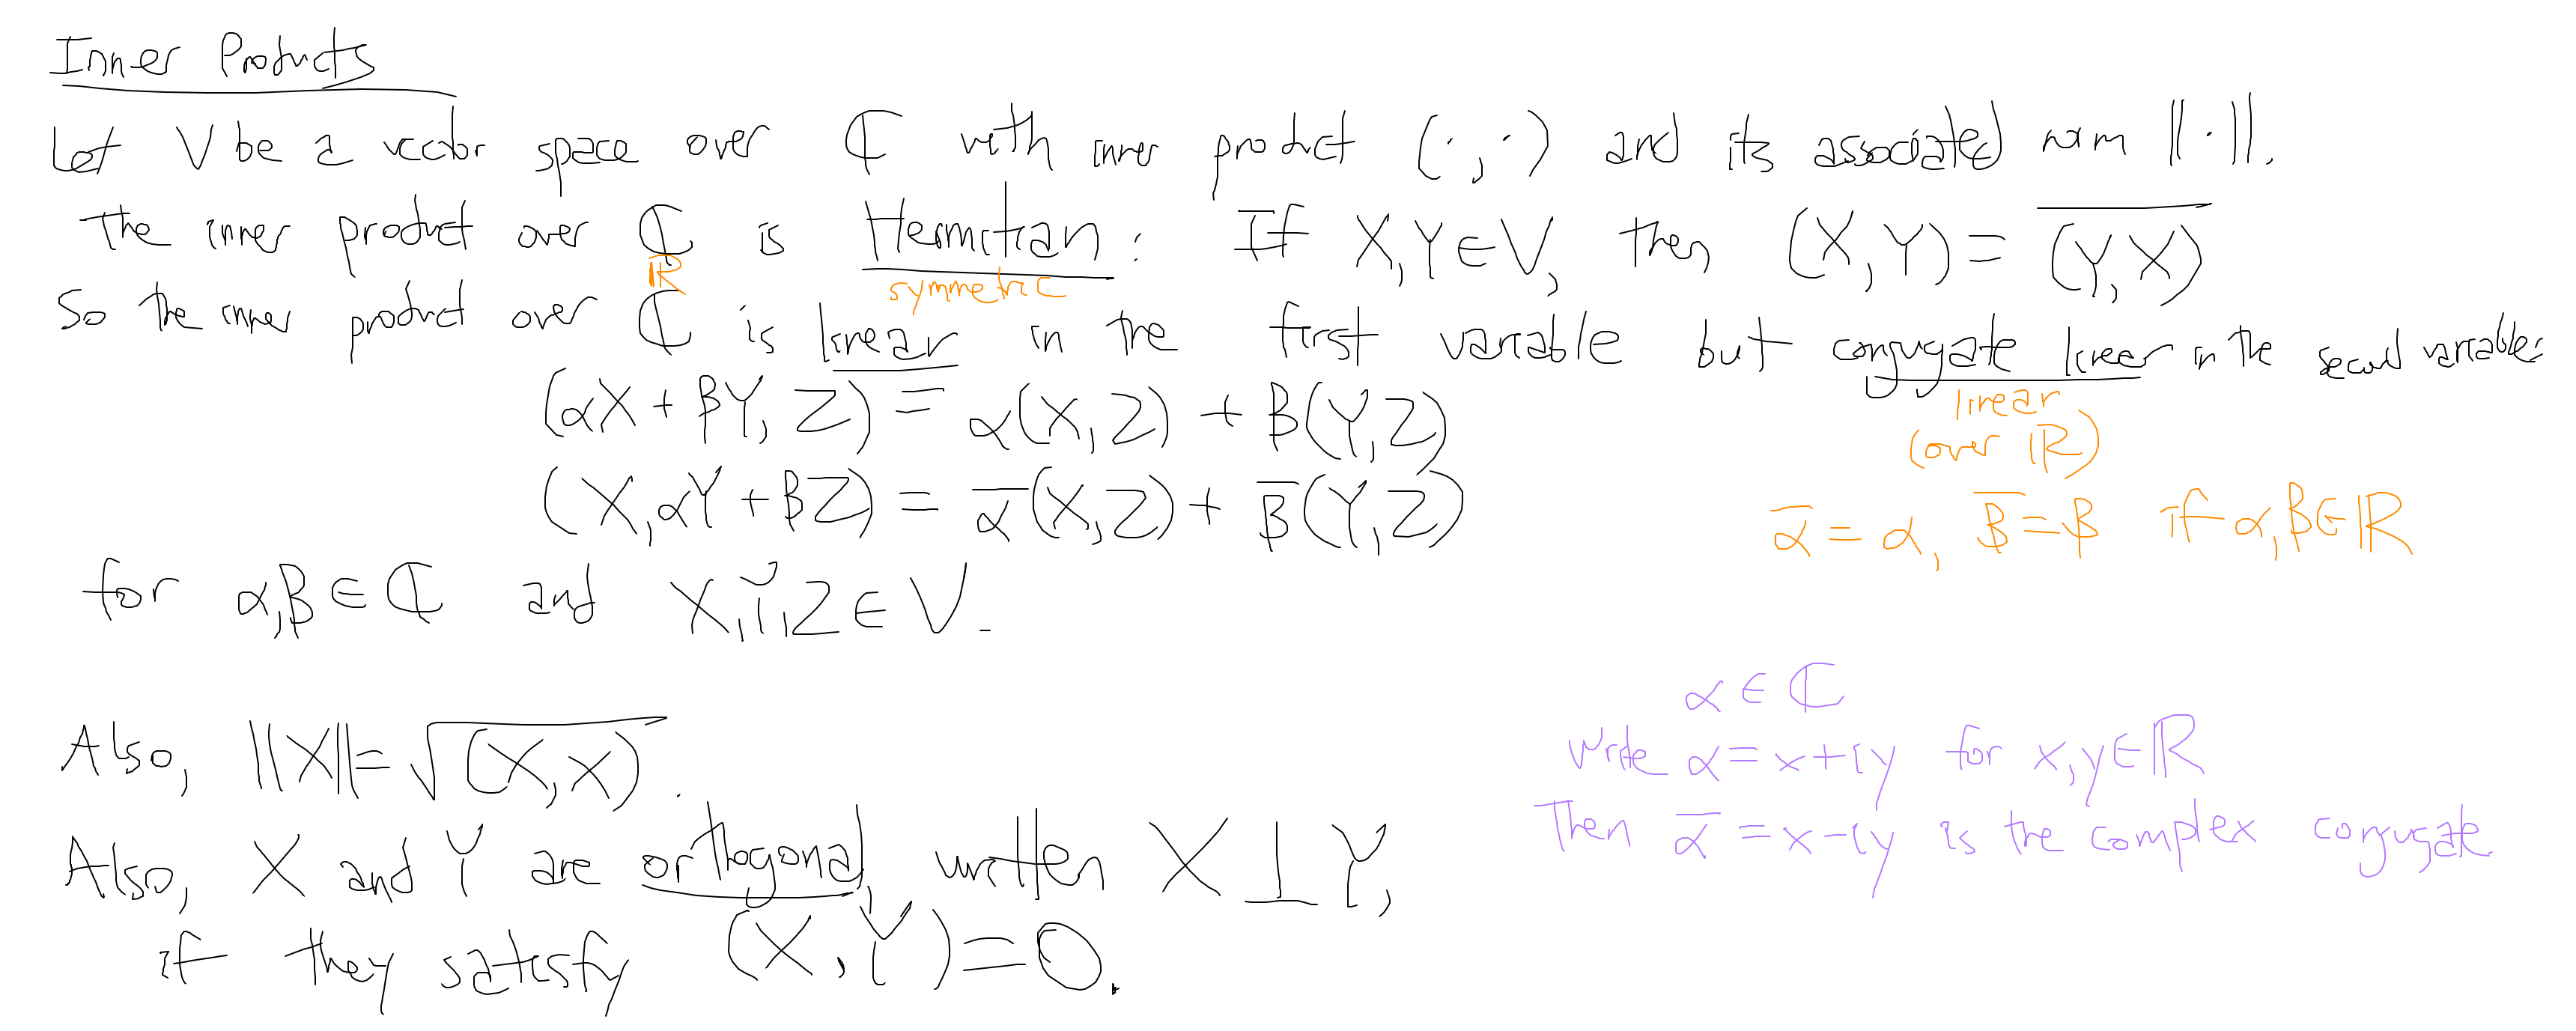 Inner Products
Let V be a vector space over ℂ with inner product (·,·) and its associated norm ||·||.
The inner product over ℂ is Hermitian: If X,Y∈V, then (X,Y)=\overline{(Y,X)}
ℝ symmetric
So the inner product over ℂ is linear in the first variable but conjugate linear in the second variable:
linear
(over ℝ)
(αX+βY, Z) = α(X,Z) + β(Y,Z)
(X, αY+βZ) = \overline{α}(X,Z) + \overline{β}(Y,Z)
\overline{α} = α, \overline{β} = β if α,β∈ℝ
for α,β∈ℂ and X,Y,Z∈V.
α∈ℂ
Write α=x+iy for x,y∈ℝ
Then \overline{α}=x-iy is the complex conjugate
Also, ||X||=√(X,X).
Also, X and Y are orthogonal, written X⊥Y,
if they satisfy (X,Y)=0.